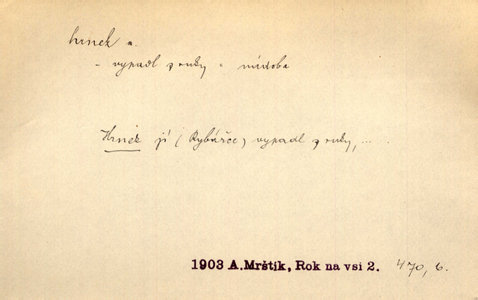 hrnek a.
- vypadl z ruky - nádoba
Hrnek jí (Rybářce) vypadl z ruky, ...
1903 A.Mrštík, Rok na vsi 2. 470, 6.